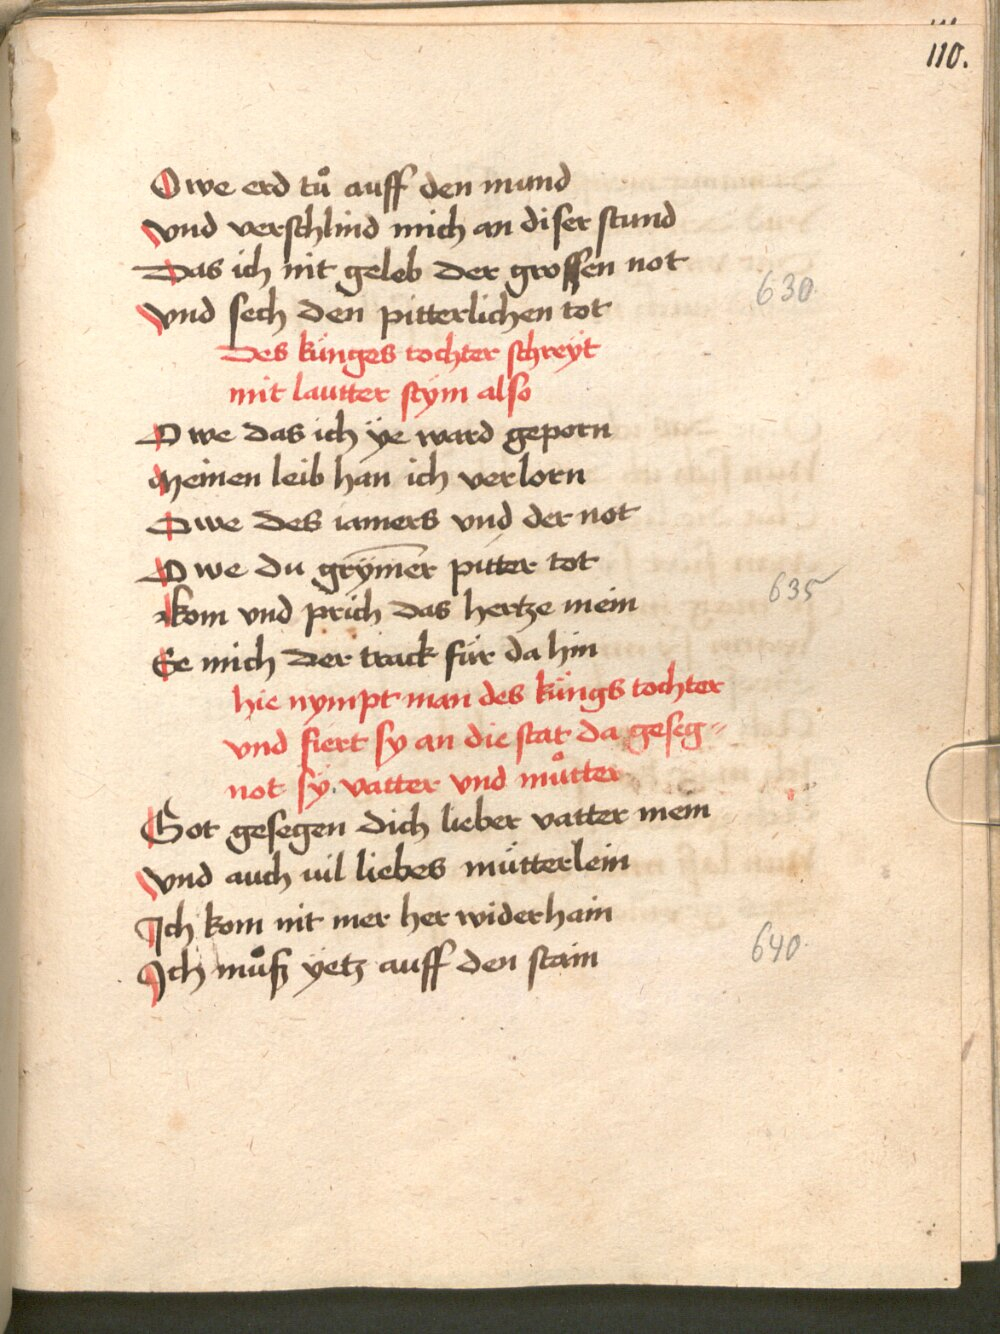 110.
Owe erd tů auff den mund
Vnd verschlind mich an diser stund
Das ich nit geleb der grossen not
630
Vnd sech den pitterlichen tot
des künges tochter schreyt
mit lautter stym also
Owe das ich ÿe ward geporn
Meinen leib han ich verlorn
Owe des iamers vnd der not
Owe du grym̄er pitter tot
635
Kom vnd prich das hertze mein
Ee mich der track für da hin
hie nympt man des küngs tochter
vnd fiert sy an die stat da geseg=
not sÿ vatter vnd můtter
Got gesegen dich lieber vatter mein
Vnd auch vil liebes mütterlein
Ich kom nit mer her widerhain
640
Ich můß yetz auff den stain